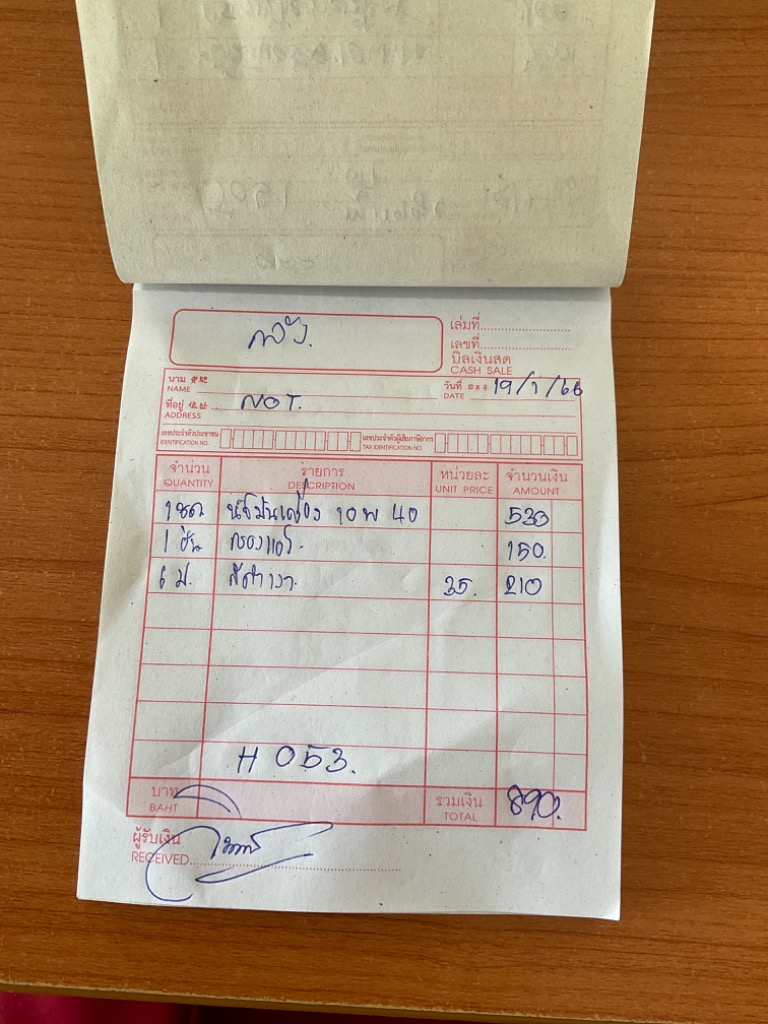 เล่มที่
เลขที่
บิลเงินสด
CASH SALE
นาม
NAME
วันที่ DATE 19/1/66
ที่อยู่
ADDRESS
NOT.
เลขประจำตัวประชาชน
IDENTIFICATION NO.
เลขประจำตัวผู้เสียภาษีอากร
TAX IDENTIFICATION NO.
จำนวน รายการ หน่วยละ จำนวนเงิน
QUANTITY DESCRIPTION UNIT PRICE AMOUNT
1 ชุด น้ำมันเครื่อง 10W 40 530
1 อัน กรองแอร์. 150.
6 ป. สีดำเงา 35. 210
H 053.
บาท รวมเงิน 890.
BAHT TOTAL
ผู้รับเงิน
RECEIVED